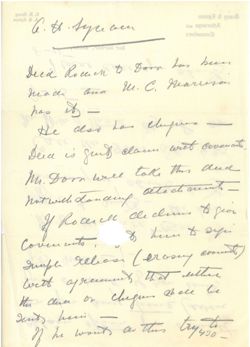 Deed Rodick to Dorr has been
made and M. C. Morrison
has it –
He also has cheques –
Deed is quit claim with covenants
Mr. Dorr will take this deed
Notwithstanding attachments –
If Rodick declines to give
Covenants get him to sign
simple release
with agreement that neither
the deed or cheques shall be
If he wants as this try to